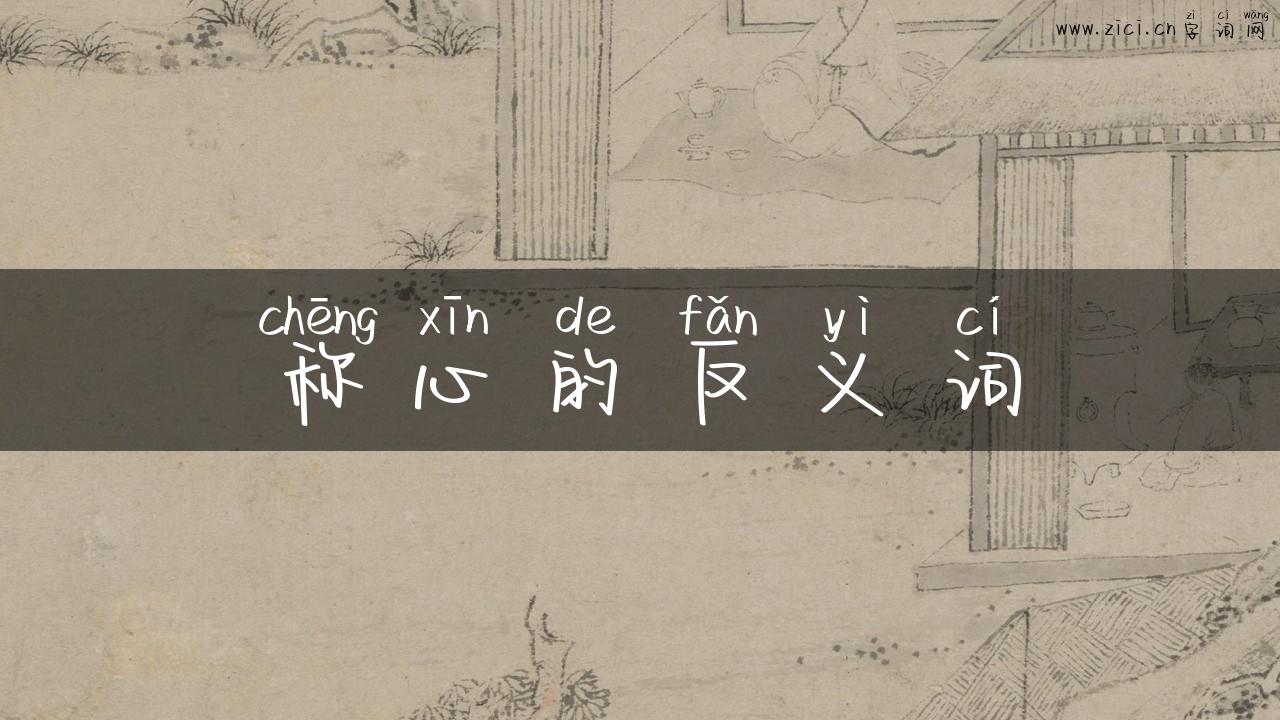 zì cí wǎng
www.zici.cn 字 词 网
chēng xīn de fǎn yì cí
称 心 的 反 义 词